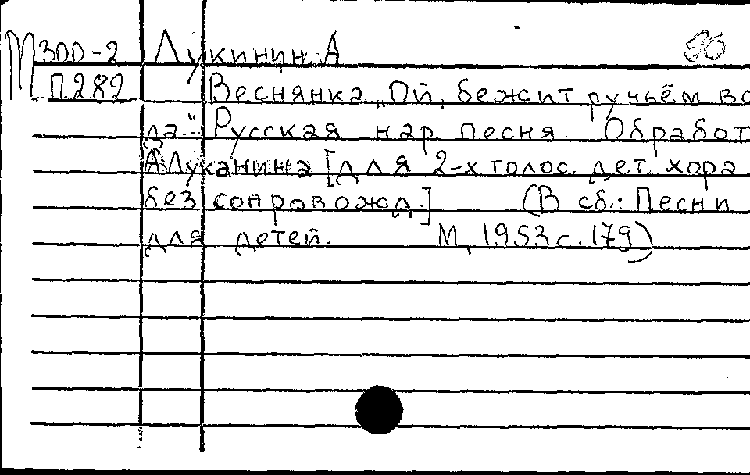 М 300-2 Лукинин А 56
П282 Веснянка „Ой, бежит ручьём во
да" Русская нар песня Обработ
А Луканина [для 2-х голос. дет. хора
без сопровожд.] (В сб.: Песни
для детей. М, 1953 с. 179)